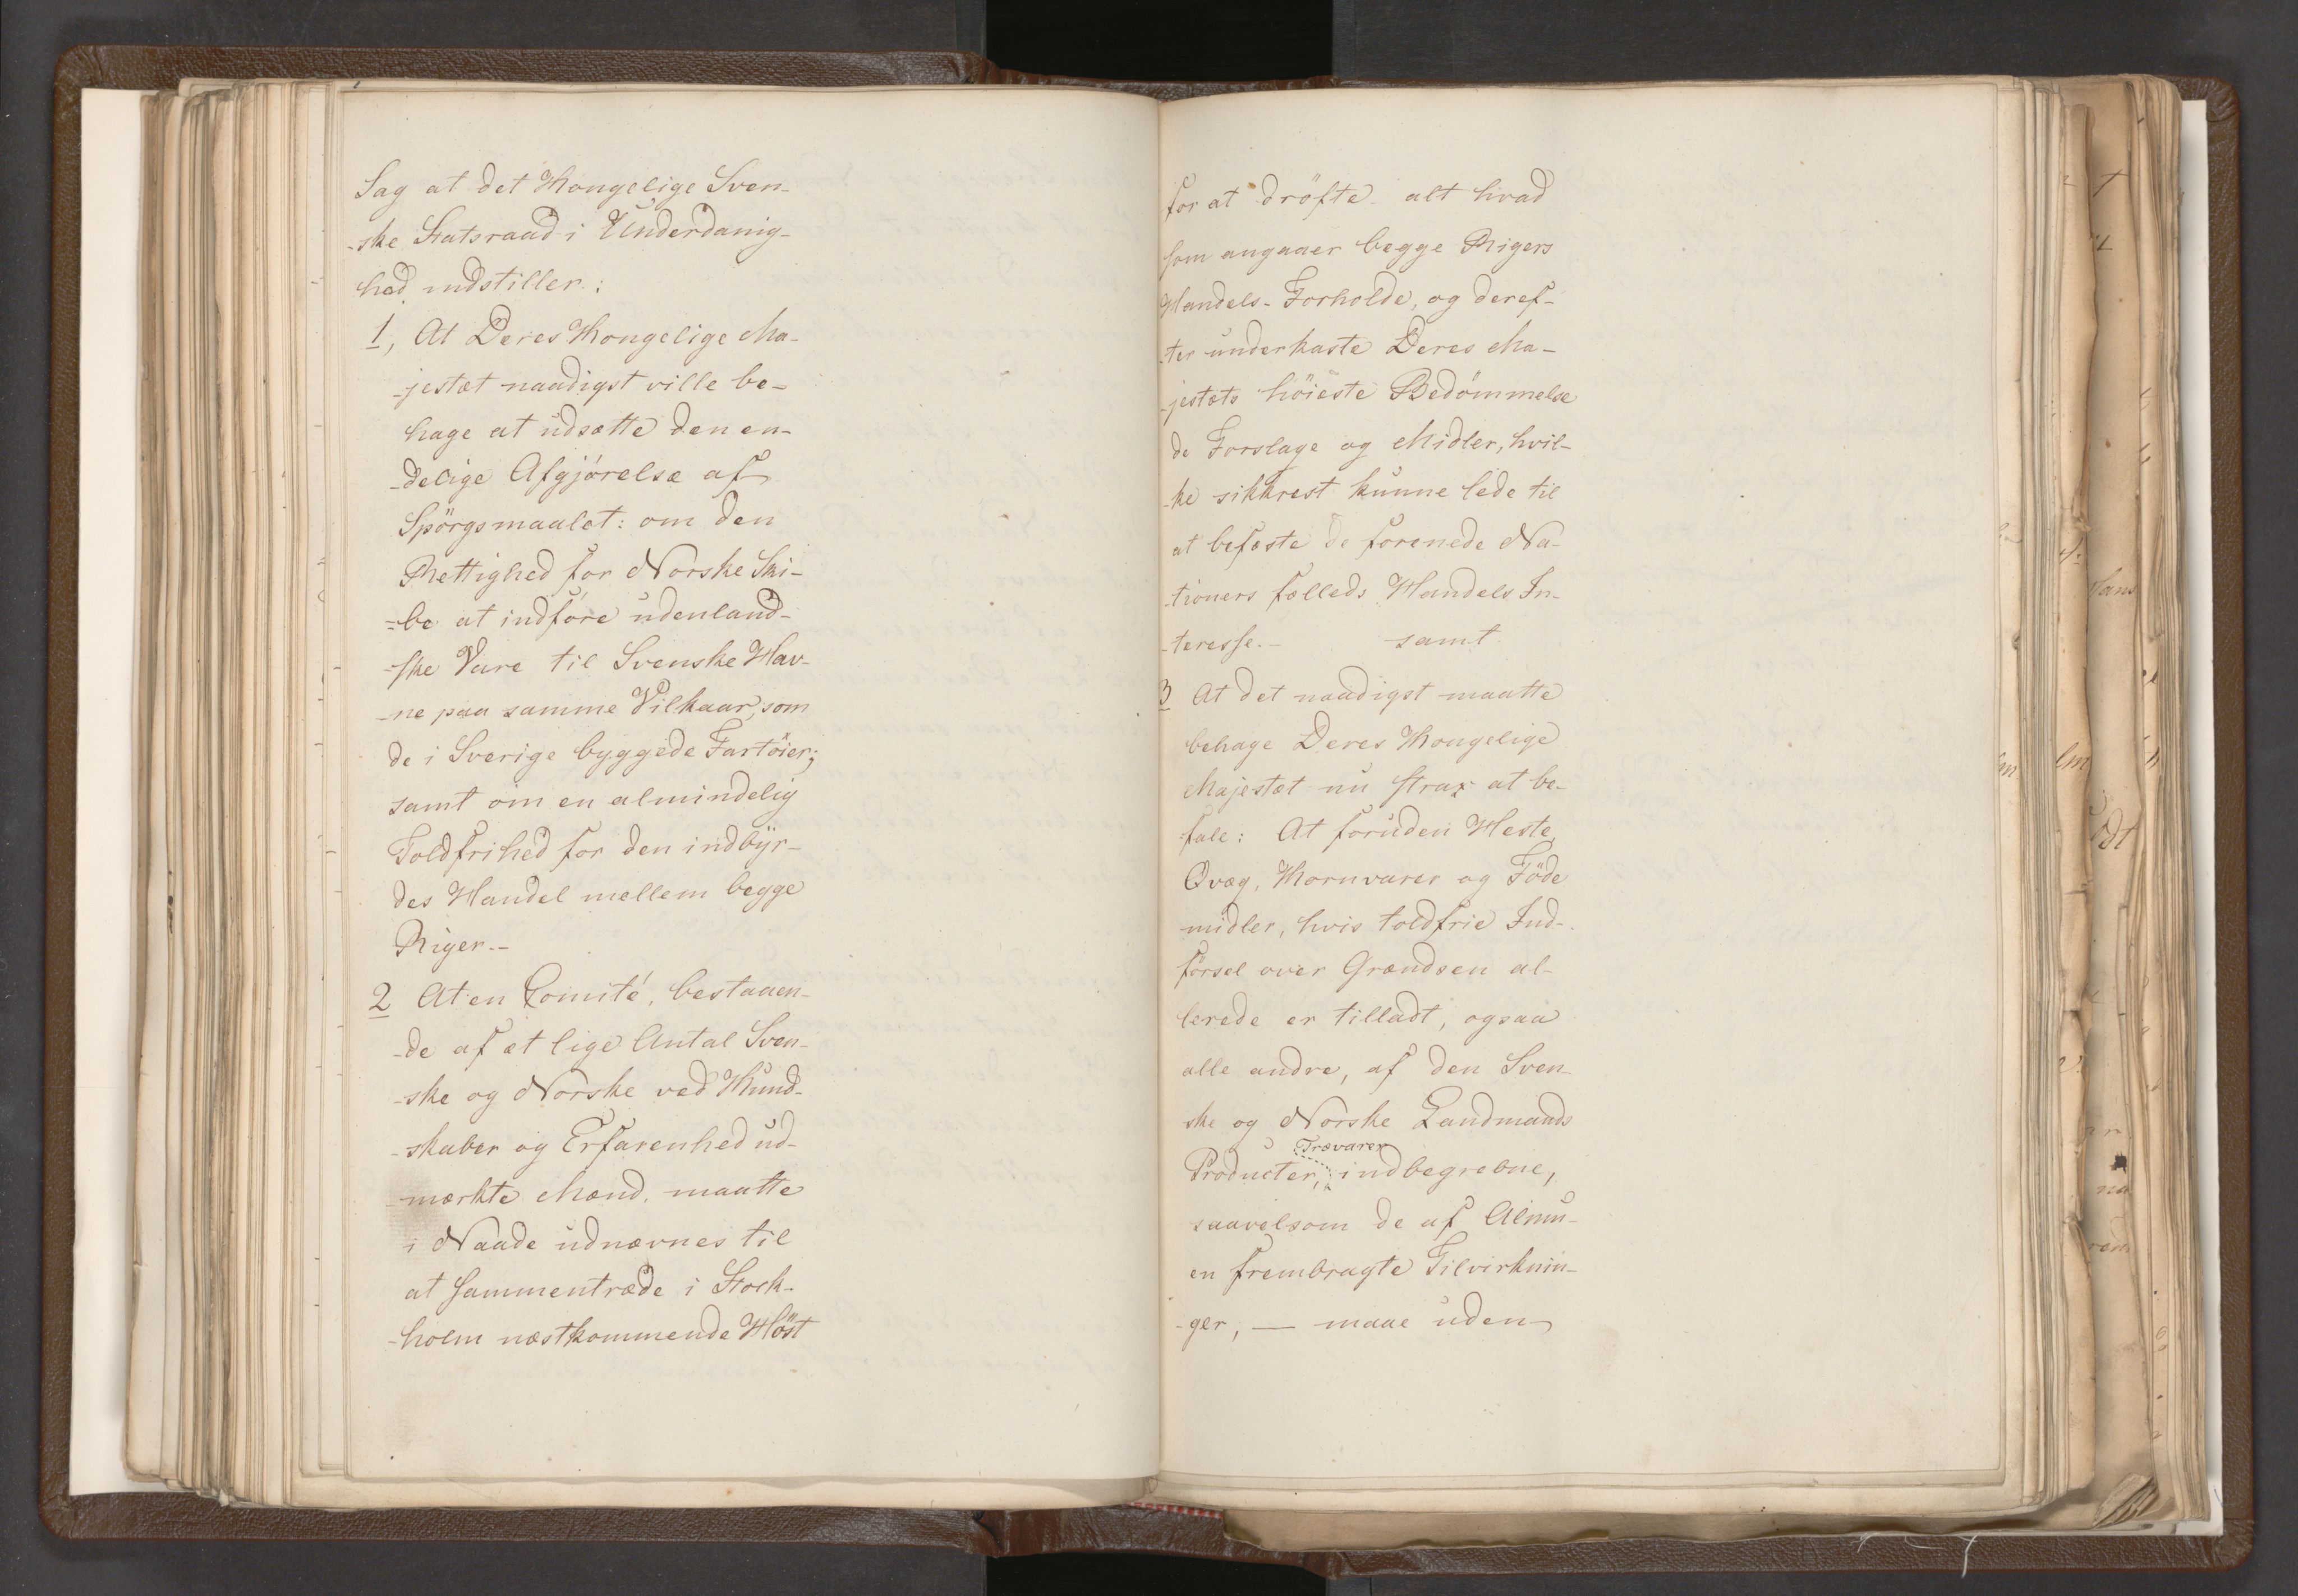 Sag at det Kongelige Sven-
-ske Statsraad i Underdanig-
hed indstiller:
1, At Deres Kongelige Ma-
-jestæt naadigst ville be-
hage at udsætte den en-
-delige Afgjørelse af
Spörgsmaalet: om den
Rettighed for Norske Ski-
=be at indföre udenland-
-ske Vare til Svenske Hav-
-ne paa samme Vilkaar, som
de i Sverige byggede Fartöier;
samt om en almindelig
Toldfrihed for den indbyr-
des Handel mellem begge
Riger.-
2 At en Comité, bestaaen-
-de af et lige Antal Sven-
-ske og Norske ved Kund-
-skaber og Erfarenhed ud-
mærkte Mænd, maatte
i Naade udnævnes til
at sammentræde i Stock-
-holm næstkommende Höst
for at dröfte alt hvad
som angaaer begge Rigers
Handels-Forholde, og deref-
-ter underkaste Deres Ma-
-jestæts höieste Bedömmelse
de Forslage og Midler, hvil-
-ke sikkrest kunne lede til
at befæste de forenede Na-
-tioners fælleds Handels In-
-teresse.- samt
3 At det naadigst maatte
behage Deres Kongelige
Majestæt nu strax at be-
fale: At foruden Heste,
Qvæg, Kornvarer og Föde
midler, hvis toldfrie Ind-
försel over Grændsen al-
lerede er tilladt, ogsaa
alle andre, af den Sven-
ske og Norske Landmands
Trævarer
Producter, indbegrebne,
saavelsom de af Almu-
en frembragte Tilvirknin-
-ger, — maae uden